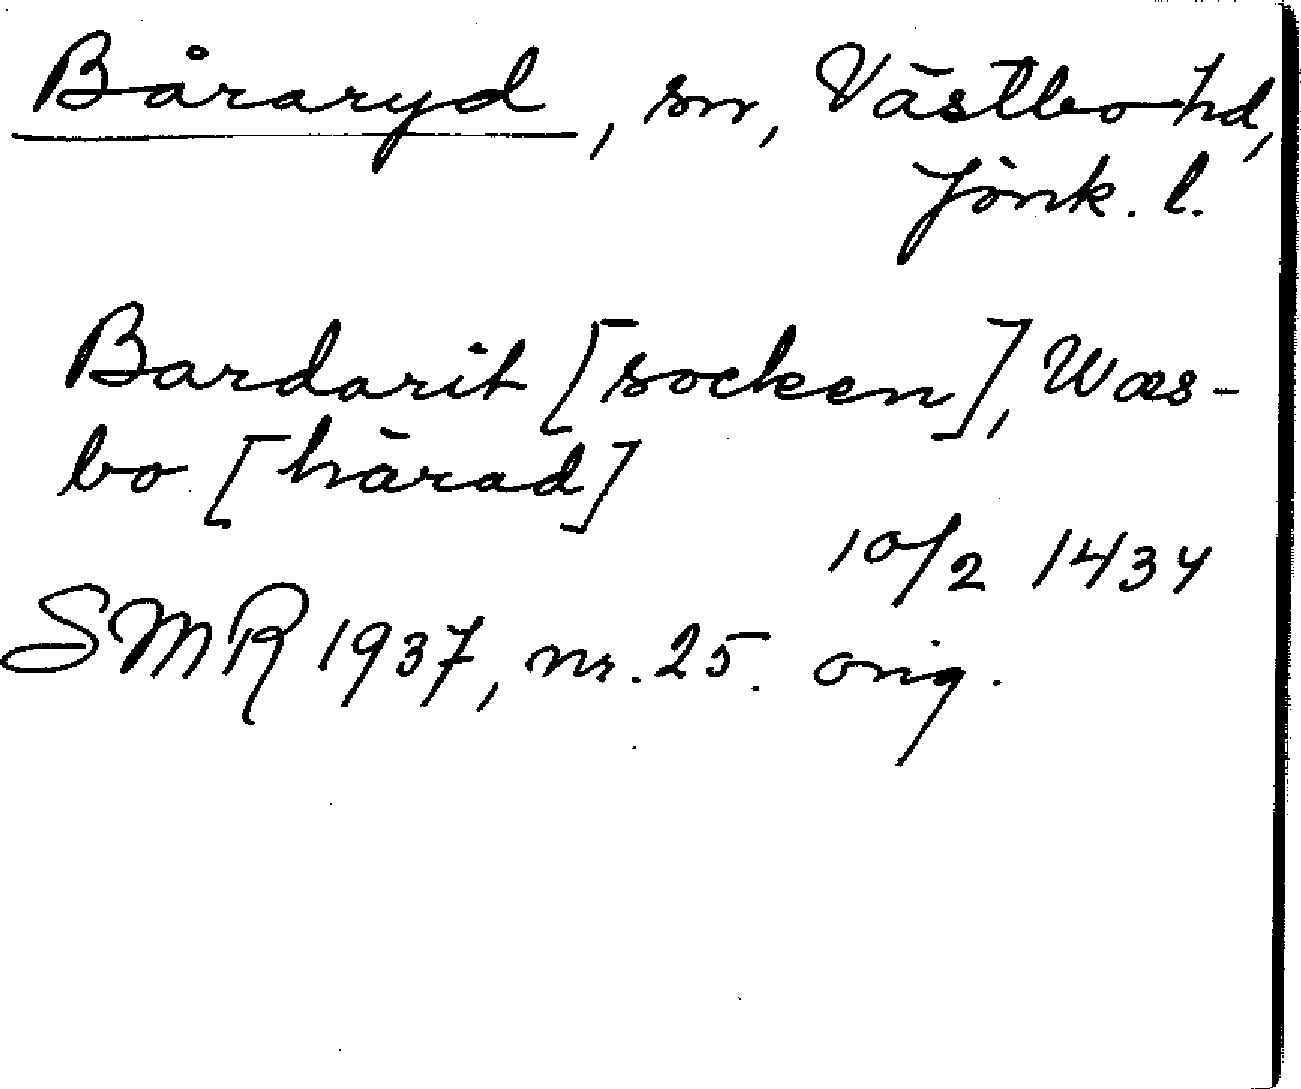 Båraryd, sn, Västbo hd,
Jönk. l.
Bardarit [socken], Wæs-
bo [härad]
10/2 1434
SMR 1937, nr. 25. orig.